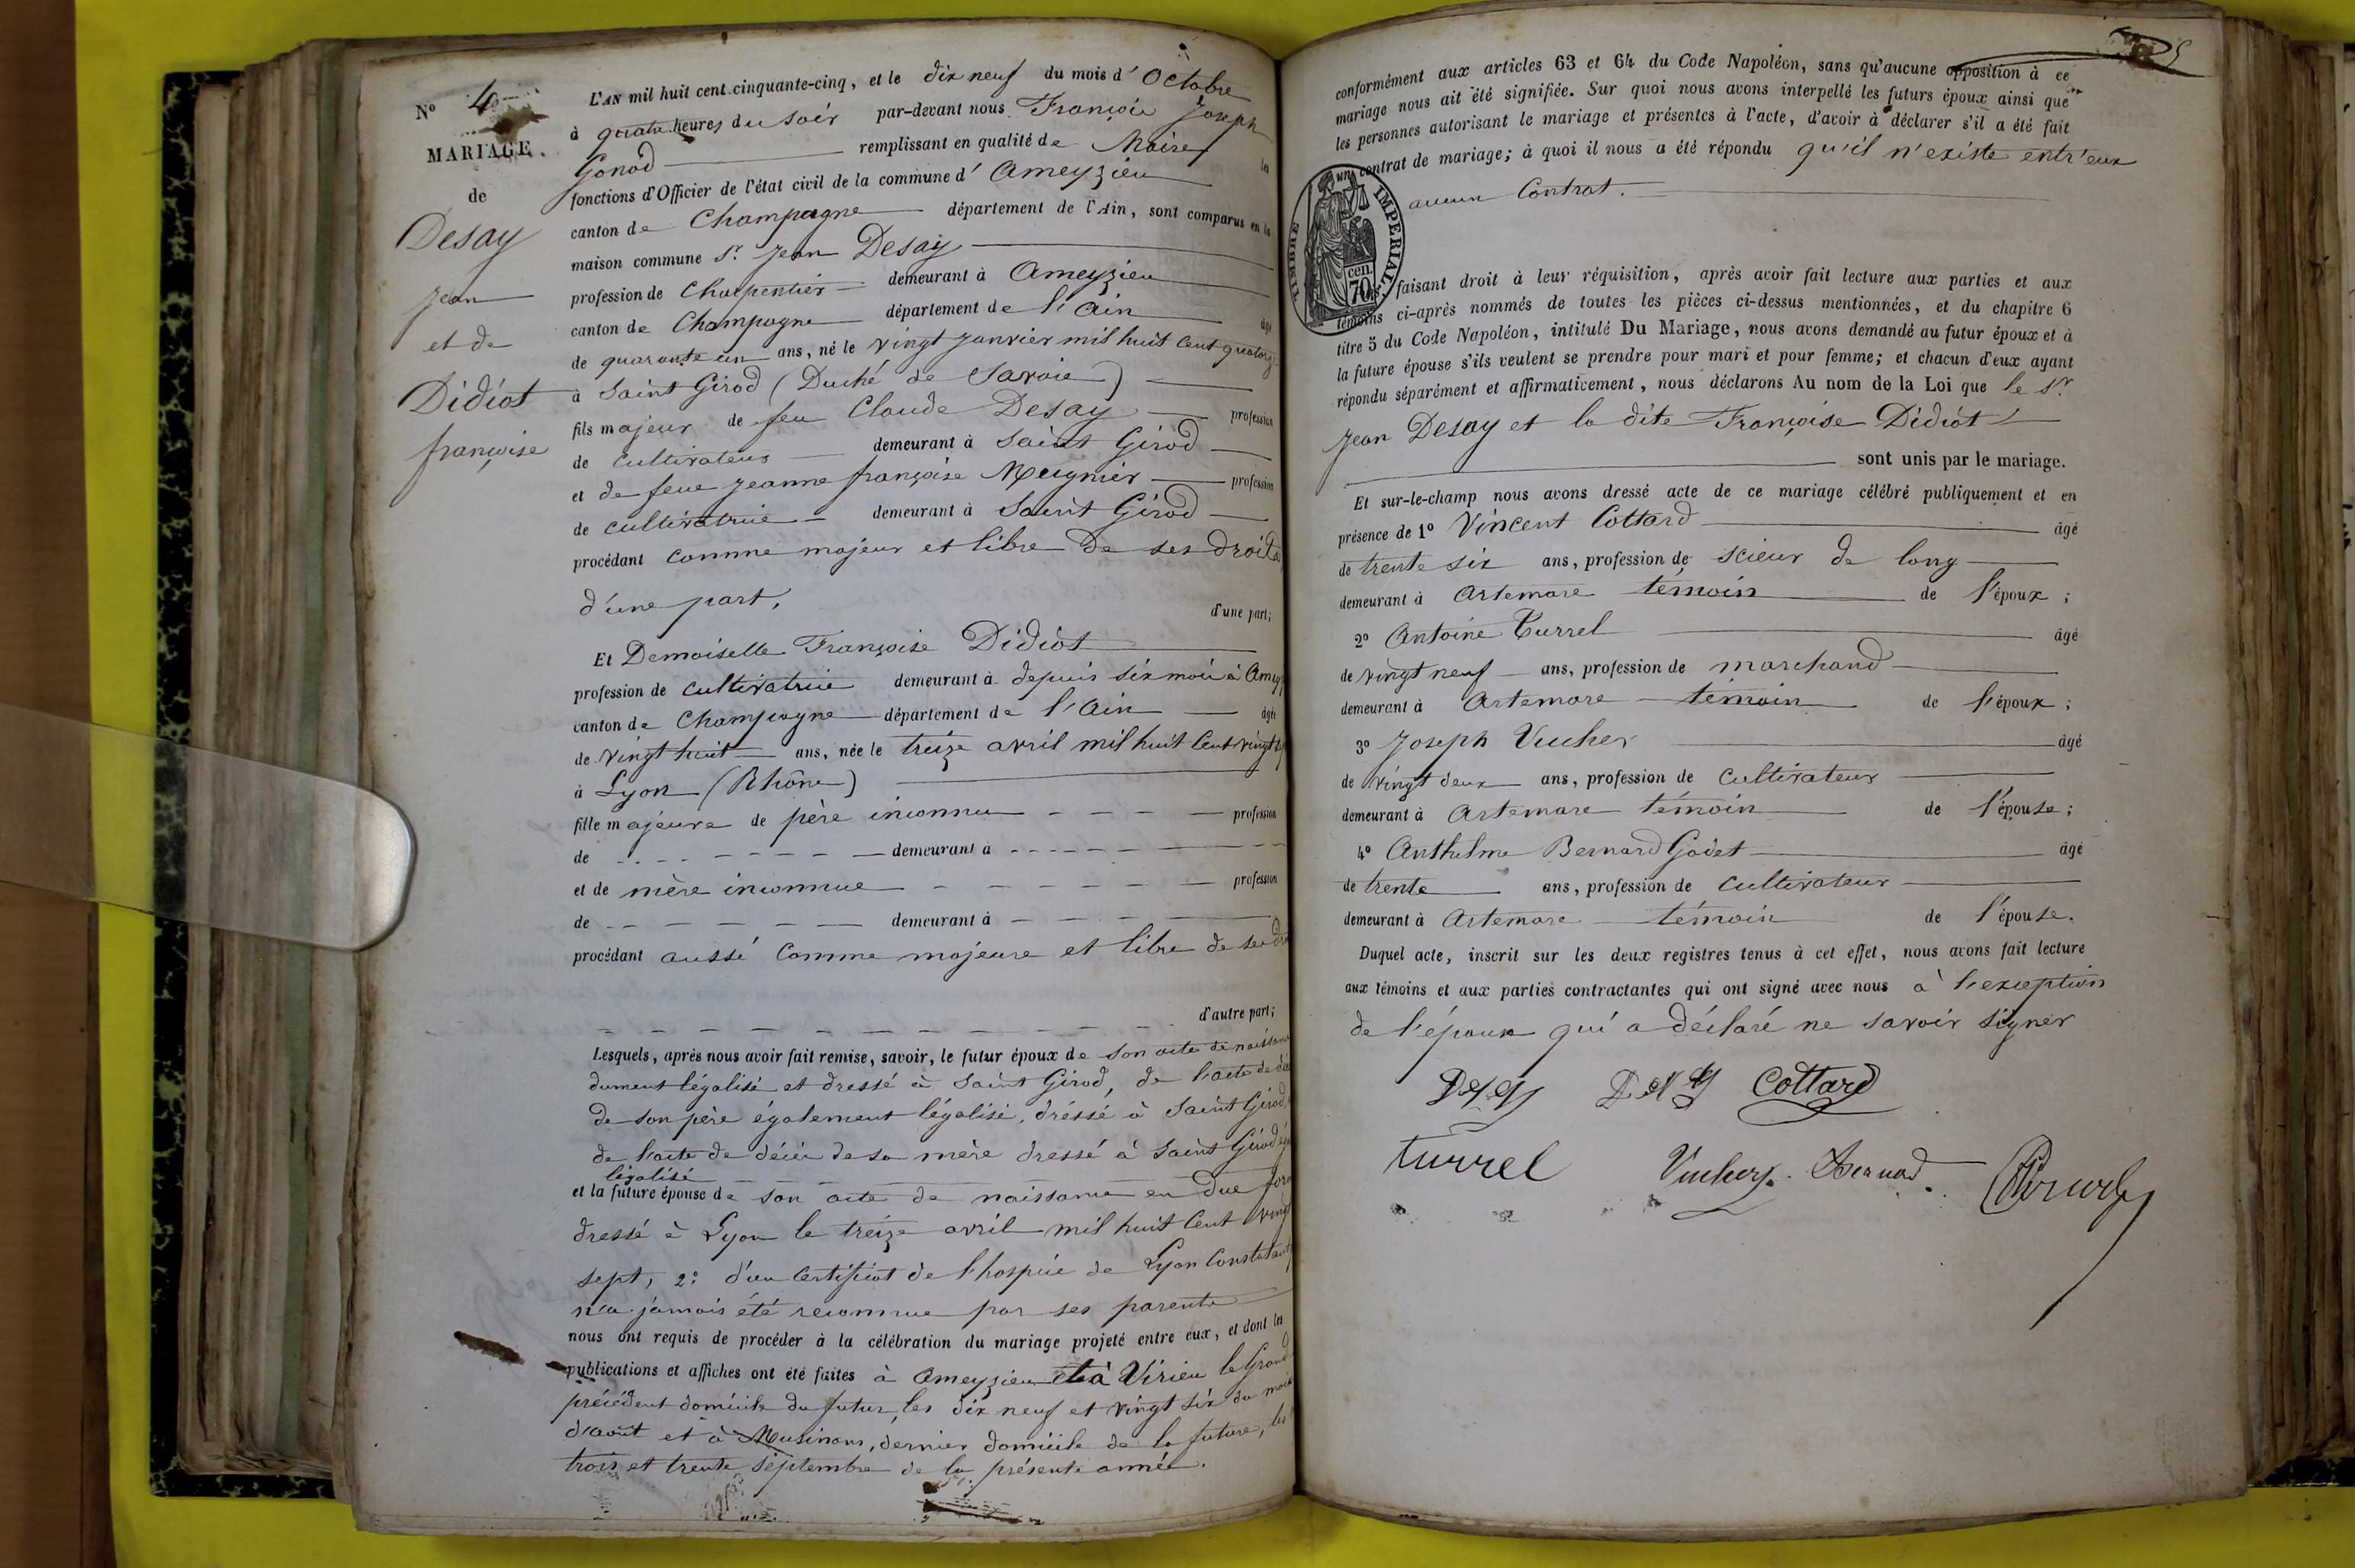 N° 4
MARIAGE
de
Desay
Jean
et de
Didiot
françoise
L'AN mil huit cent cinquante-cinq, et le dix neuf du mois d'Octobre
à quatre heures du soir par-devant nous François Joseph
Gonod remplissant en qualité de Maire les
fonctions d'Officier de l'état civil de la commune d'Ameyzieu
canton de Champagne département de l'Ain, sont comparus en la
maison commune Sr. Jean Desay
profession de Charpentier demeurant à Ameyzieu
canton de Champagne département de l'Ain âgé
de quarante un ans, né le vingt janvier mil huit cent quatorze
à Saint Girod (Duché de Savoie)
fils majeur de feu Claude Desay profession
de cultivateur demeurant à Saint Girod
et de feue Jeanne françoise Meignier profession
de cultivatrice demeurant à Saint Girod
procédant comme majeur et libre de ses droits
d'une part,
d'une part;
Et Demoiselle Françoise Didiot
profession de cultivatrice demeurant à depuis six mois à Amey
canton de Champagne département de l'Ain âgée
de vingt huit ans, née le treize avril mil huit cent vingt
à Lyon (Rhône)
fille majeure de père inconnu profession
de demeurant à
et de mère inconnue profession
de demeurant à
procédant aussi comme majeure et libre de ses
d'autre part;
Lesquels, après nous avoir fait remise, savoir, le futur époux de son acte de naissance
dument légalisé et dressé à Saint Girod, de l'acte de
de son père également légalisé, dréssé à Saint Girod
de l'acte de décès de sa mère dressé à Saint Girod
légalisé
et la future épouse de son acte de naissance en due
dressé à Lyon le treize avril mil huit cent vingt
sept, 2° d'un certificat de l'hospice de Lyon constatant
n'a jamais été reconnue par ses parents
nous ont requis de procéder à la célébration du mariage projeté entre eux, et dont les
publications et affiches ont été faites à Ameyzieu et à Virieu le Grand
précédent domicile du futur, les dix neuf et vingt six du mois
d'août et à Musinens, dernier domicile de la future, les
trois et trente septembre de la présente année.
5
conformément aux articles 63 et 64 du Code Napoléon, sans qu'aucune opposition à ce
mariage nous ait été signifiée. Sur quoi nous avons interpellé les futurs époux ainsi que
les personnes autorisant le mariage et présentes à l'acte, d'avoir à déclarer s'il a été fait
un contrat de mariage; à quoi il nous a été répondu qu'il n'existe entr'eux
aucun Contrat.
TIMBRE IMPERIAL
70 cen.
faisant droit à leur réquisition, après avoir fait lecture aux parties et aux
témoins ci-après nommés de toutes les pièces ci-dessus mentionnées, et du chapitre 6
titre 5 du Code Napoléon, intitulé Du Mariage, nous avons demandé au futur époux et à
la future épouse s'ils veulent se prendre pour mari et pour femme; et chacun d'eux ayant
répondu séparément et affirmativement, nous déclarons Au nom de la Loi que le Sr.
Jean Desay et la dite Françoise Didiot
sont unis par le mariage.
Et sur-le-champ nous avons dressé acte de ce mariage célébré publiquement et en
présence de 1° Vincent Cottard âgé
de trente six ans, profession de scieur de long
demeurant à Artemare témoin de l'époux;
2° Antoine Turrel âgé
de vingt neuf ans, profession de marchand
demeurant à Artemare témoin de l'époux;
3° Joseph Vucher âgé
de vingt deux ans, profession de cultivateur
demeurant à Artemare témoin de l'épouse;
4° Anthelme Bernard Godet âgé
de trente ans, profession de cultivateur
demeurant à Artemare témoin de l'épouse.
Duquel acte, inscrit sur les deux registres tenus à cet effet, nous avons fait lecture
aux témoins et aux parties contractantes qui ont signé avec nous à l'exception
de l'époux qui a déclaré ne savoir signer
Cottard
turrel Vucher Bernard